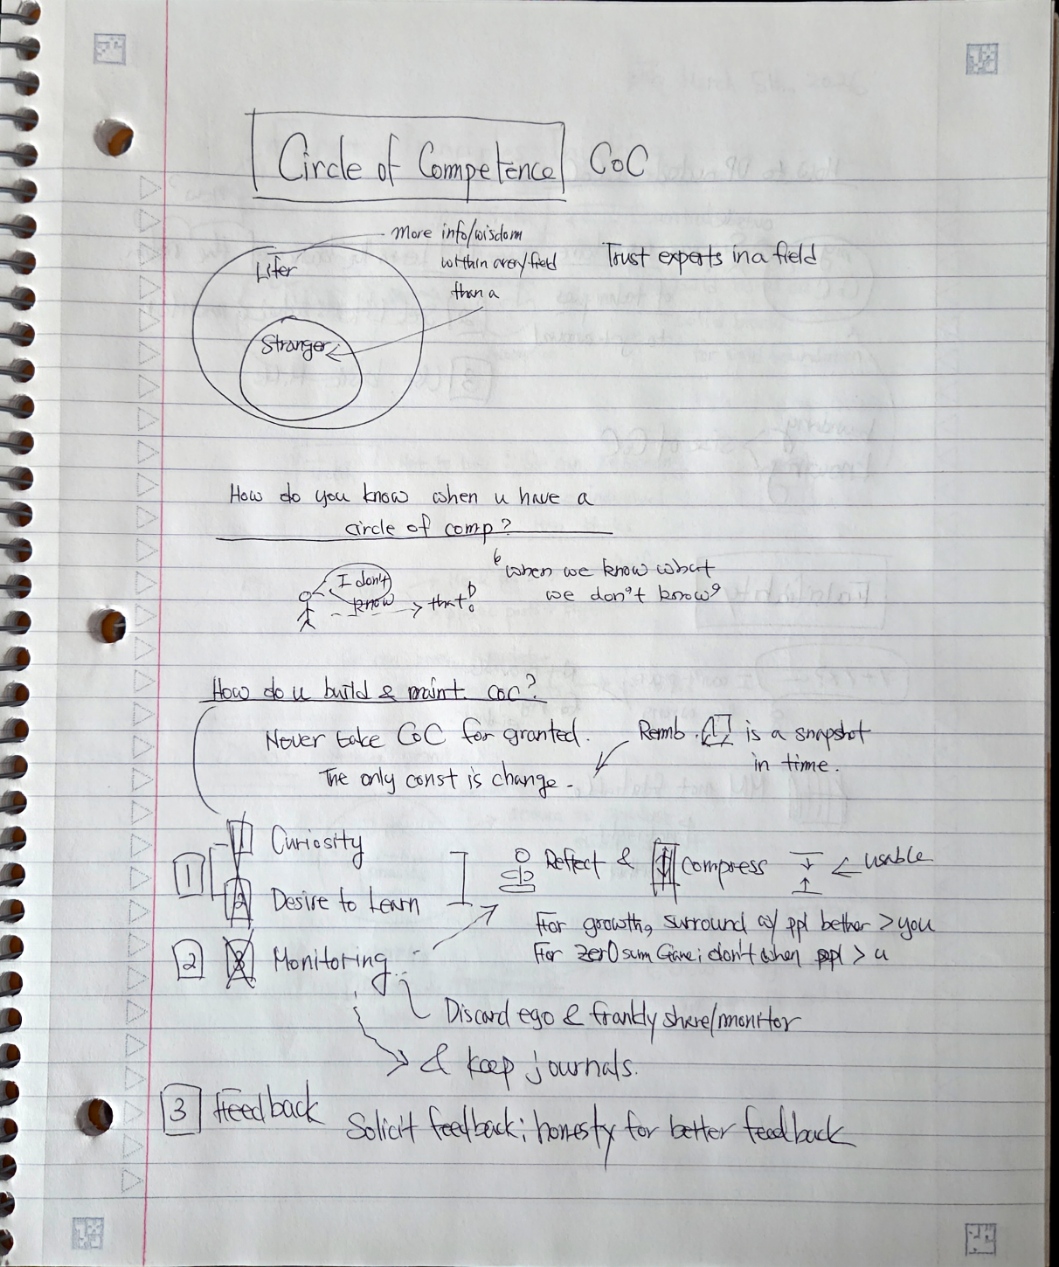 Circle of Competence CoC
More info/wisdom
within area/field
than a
Trust experts in a field
Lifer
Stranger
How do you know when u have a
circle of comp?
I don't
know
that!
"when we know what
we don't know"
How do u build & maint. CoC?
Never take CoC for granted.
Remb. is a snapshot
in time.
The only const is change.
1
1 Curiosity
2 Desire to Learn
Reflect & compress
← usable
For growth, surround w/ ppl better > you
For zero sum Game; don't when ppl > u
2 3 Monitoring
Discard ego & frankly share/monitor
& keep journals.
3 Feedback Solicit feedback; honesty for better feedback